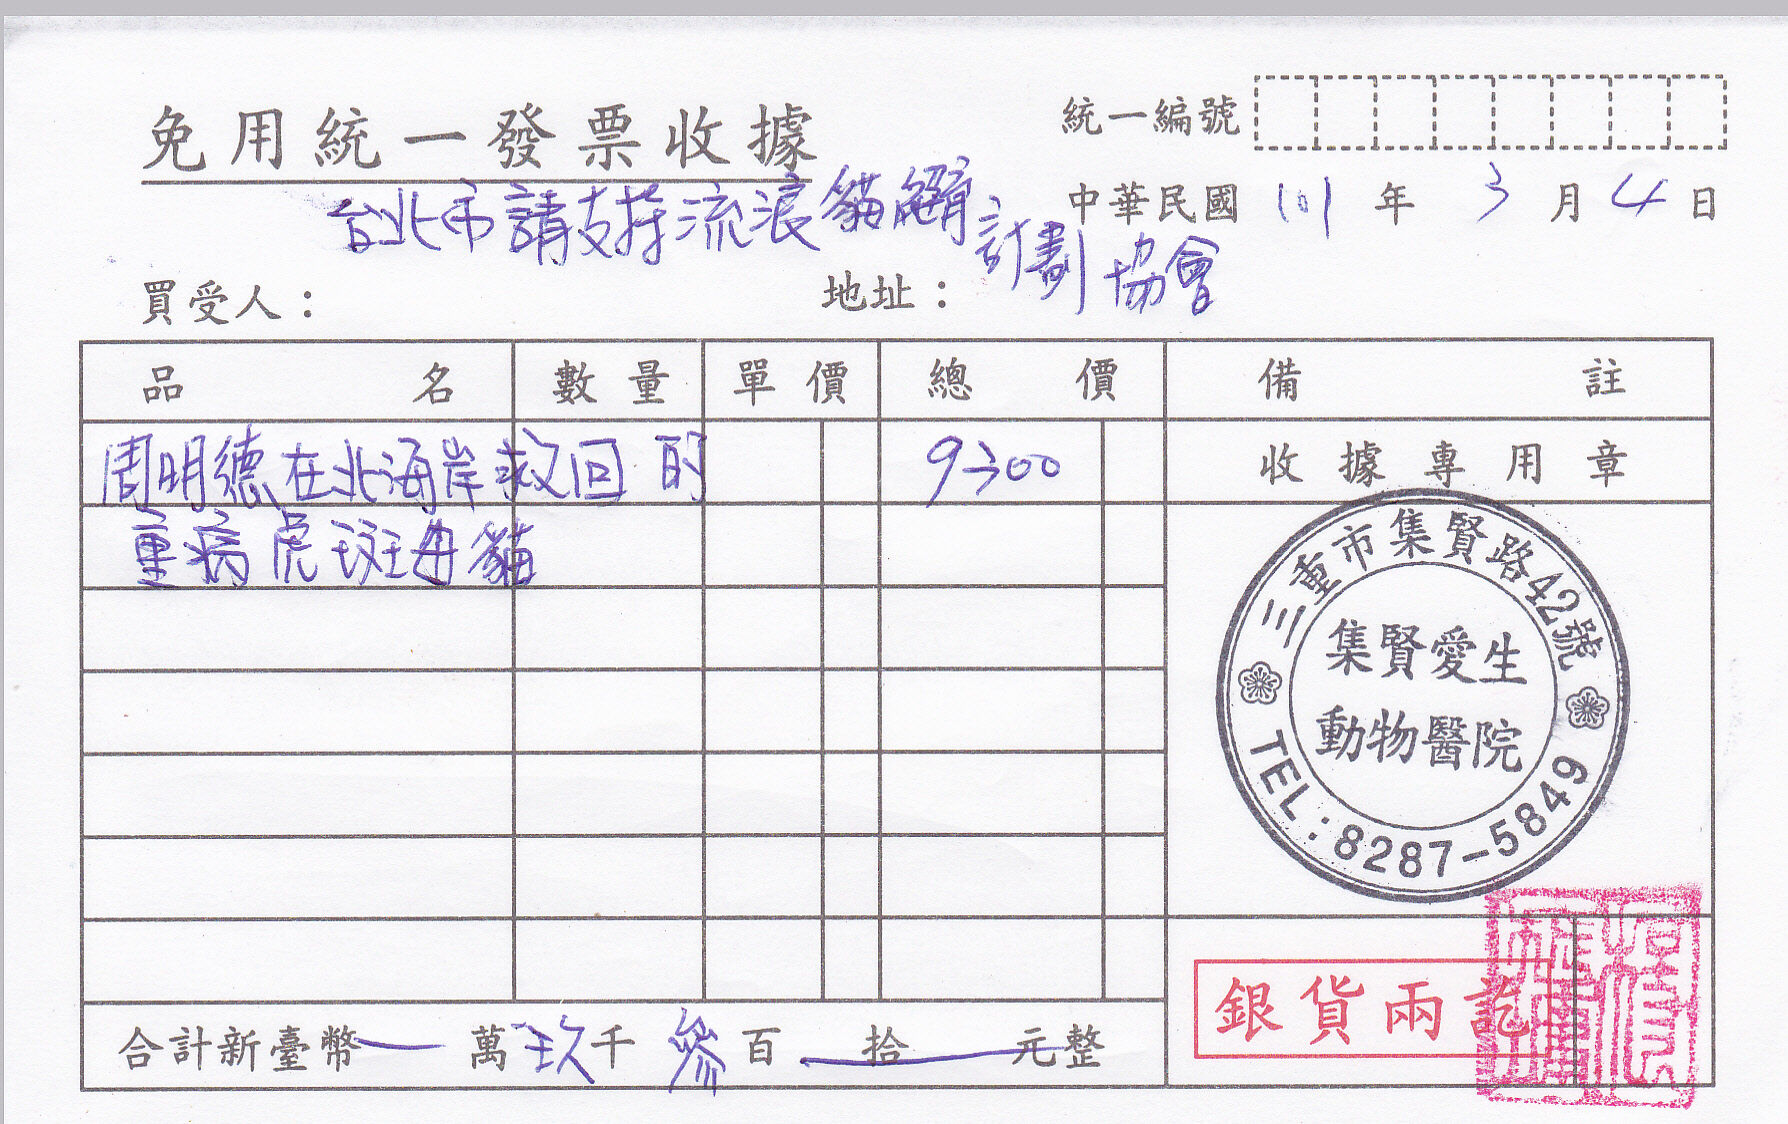 免用統一發票收據
統一編號
中華民國 101 年 3 月 4 日
台北市請支持流浪貓絕育計劃協會
買受人：
地址：
品名 數量 單價 總價 備註
周明德在北海岸救回的 9300 收據專用章
重病虎斑母貓
三重市集賢路42號
集賢愛生
動物醫院
TEL:8287-5849
銀貨兩訖
合計新臺幣一萬玖千參百拾元整